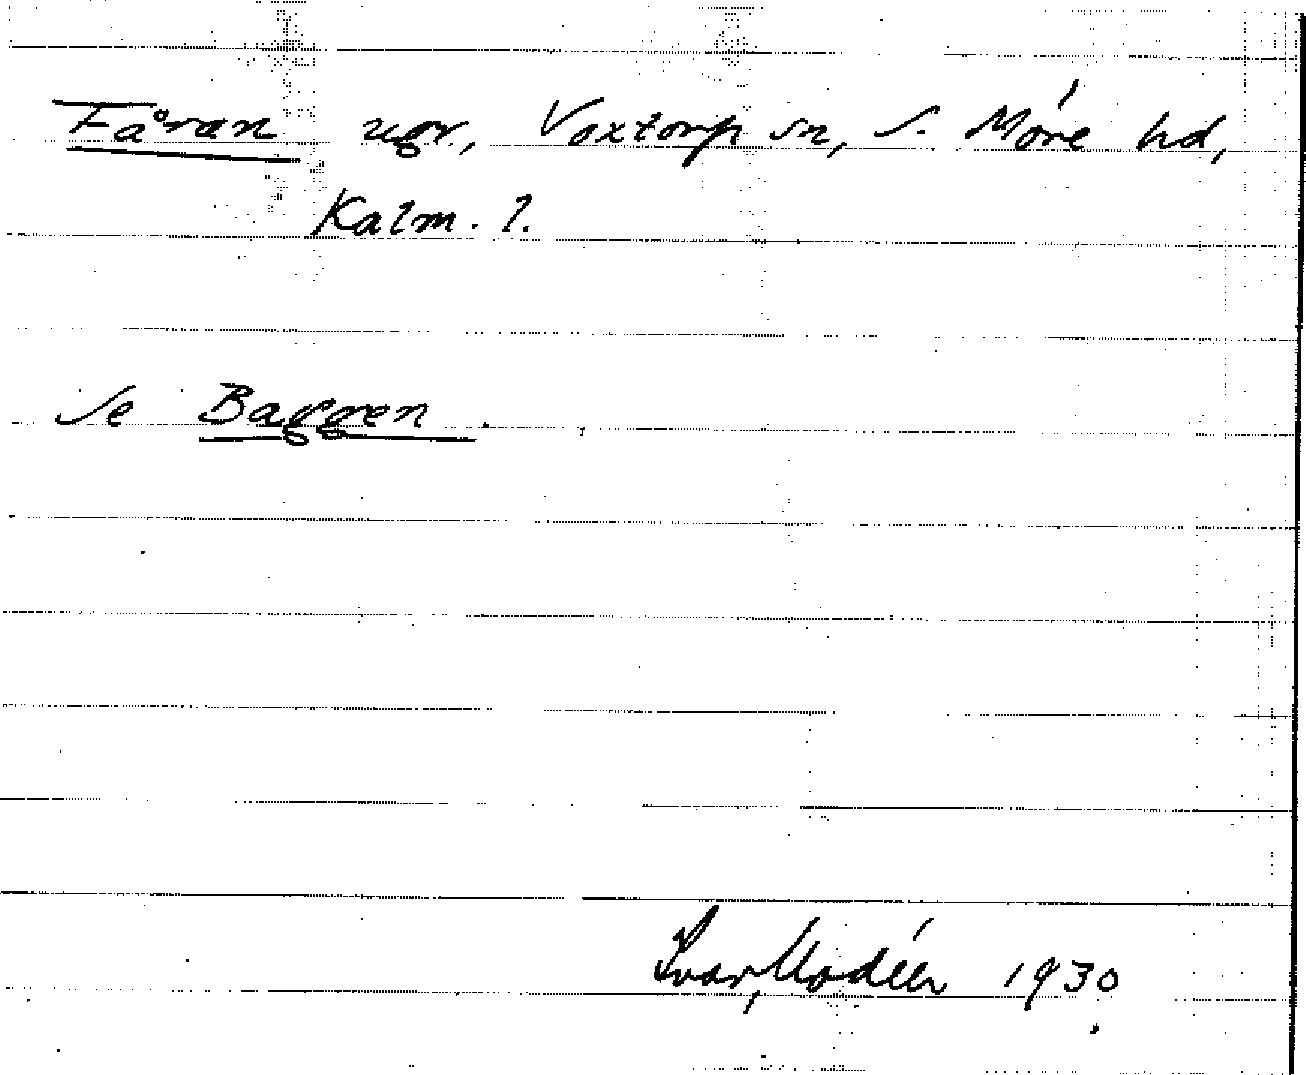 Fåran ugr, Voxtorp sn, S. Möre hd,
Kalm. l.
Se Baggen.
Ivar Modéer 1930